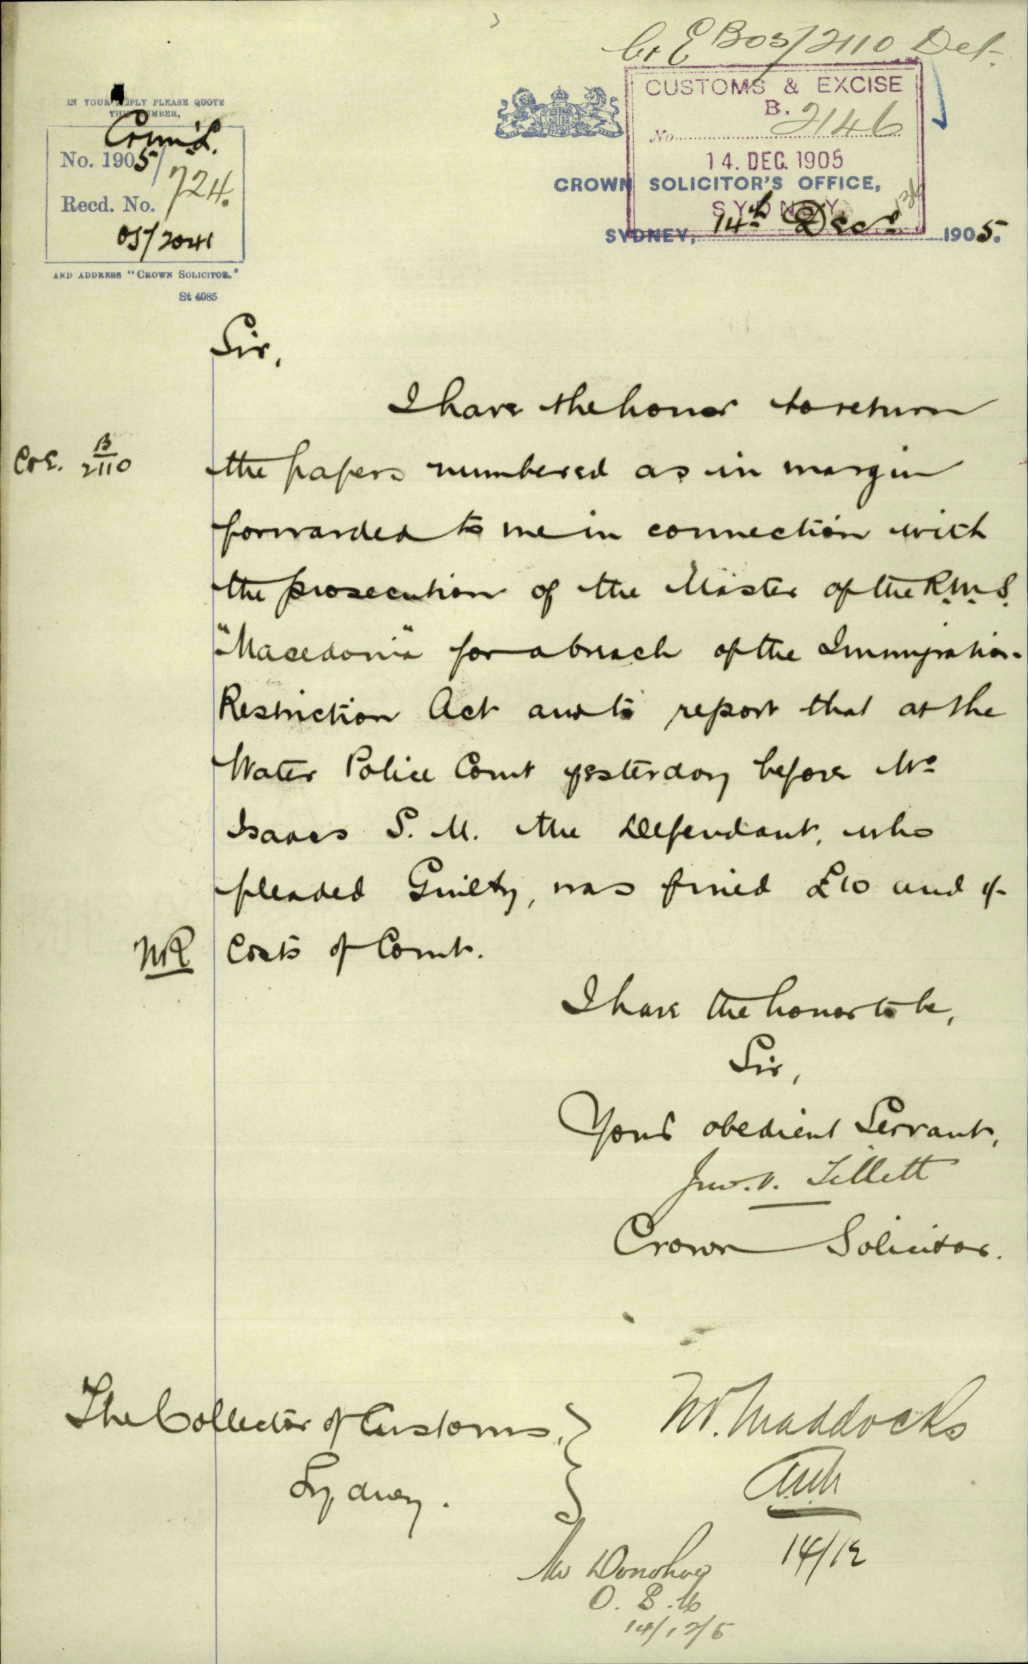 C & E B05/2110 Det.
IN YOUR REPLY PLEASE QUOTE
THIS NUMBER,
Crim'l.
No. 1905/724.
Recd. No.
05/2041
AND ADDRESS "CROWN SOLICITOR."
St 4085
CUSTOMS & EXCISE
B.
No 2146
14. DEC. 1905
SYDNEY
CROWN SOLICITOR'S OFFICE,
SYDNEY, 14th Decr 1905.
Sir,
I have the honor to return
C & E. B/2110
the papers numbered as in margin
forwarded to me in connection with
the prosecution of the Master of the R.M.S.
"Macedonia" for a breach of the Immigration
Restriction Act and to report that at the
Water Police Court yesterday before Mr
Isaacs S. M. the Defendant, who
pleaded Guilty, was fined £10 and 6/-
Costs of Court.
I have the honor to be,
Sir,
Your obedient Servant,
Jno. V. Tillett
Crown Solicitor.
The Collector of Customs,
Sydney.
Mr. Maddocks
14/12
Mr Donohoe
14/12/5